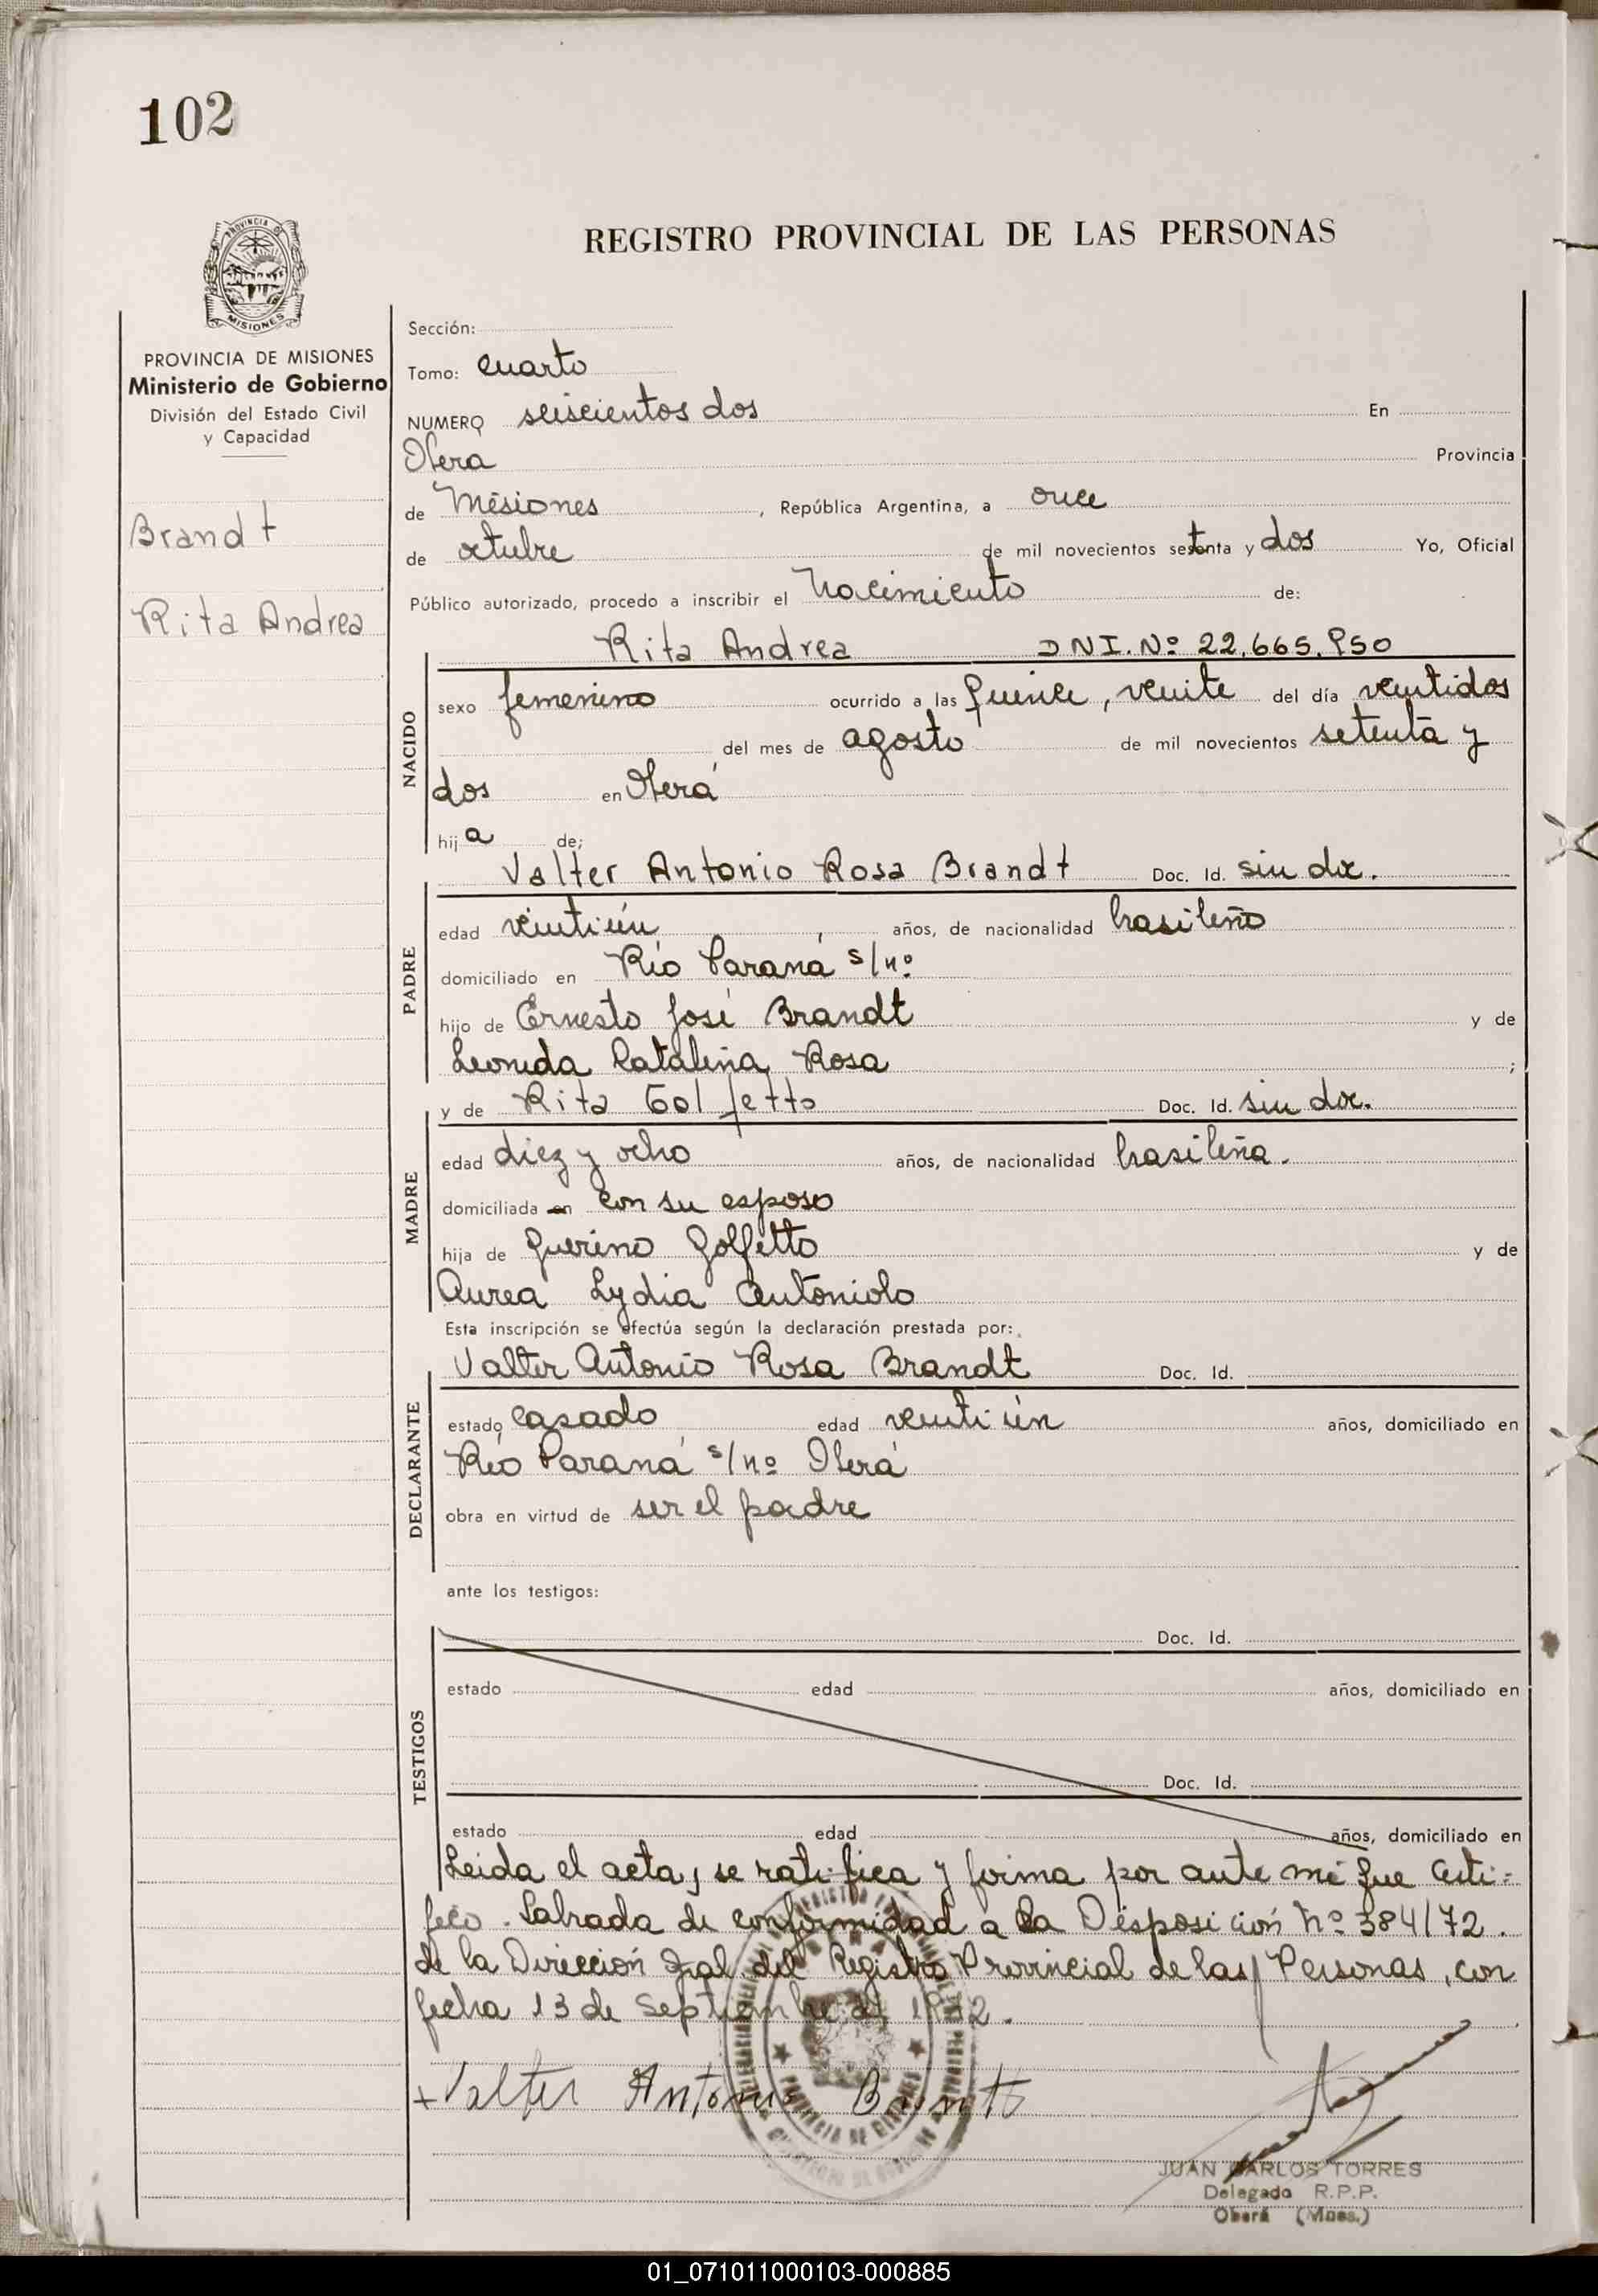 102
REGISTRO PROVINCIAL DE LAS PERSONAS
PROVINCIA DE
MISIONES
PROVINCIA DE MISIONES
Ministerio de Gobierno
División del Estado Civil
y Capacidad
Brandt
Rita Andrea
Sección:
Tomo: cuarto
NUMERO seiscientos dos En
Obera Provincia
de Misiones, República Argentina, a once
de octubre de mil novecientos setenta y dos Yo, Oficial
Público autorizado, procedo a inscribir el Nacimiento de:
NACIDO
Rita Andrea DNI. Nº 22.665.950
sexo femenino ocurrido a las quince, veinte del día veintidos
del mes de agosto de mil novecientos setenta y
dos en Oberá
hija de;
PADRE
Valter Antonio Rosa Brandt Doc. Id. sin doc.
edad veintiún años, de nacionalidad brasileño
domiciliado en Río Paraná s/nº
hijo de Ernesto José Brandt y de
Leonida Catalina Rosa ;
MADRE
y de Rita Golfetto Doc. Id. sin doc.
edad diez y ocho años, de nacionalidad brasileña.
domiciliada en con su esposo
hija de Querino Golfetto y de
Aurea Lydia Antoniolo
Esta inscripción se efectúa según la declaración prestada por:
DECLARANTE
Valter Antonio Rosa Brandt Doc. Id.
estado casado edad veintiún años, domiciliado en
Río Paraná s/nº Oberá
obra en virtud de ser el padre
ante los testigos:
TESTIGOS
Doc. Id.
estado edad años, domiciliado en
Doc. Id.
estado edad años, domiciliado en
Leida el acta, se ratifica y firma por ante mí que certi=
fico. Labrada de conformidad a la Disposición Nº 384/72.
de la Dirección Gral del Registro Provincial de las Personas, con
fecha 13 de Septiembre de 1972.
+ Valter Antonio Brantt
JUAN CARLOS TORRES
Delegado R.P.P.
Oberá (Mnes.)
01_071011000103-000885